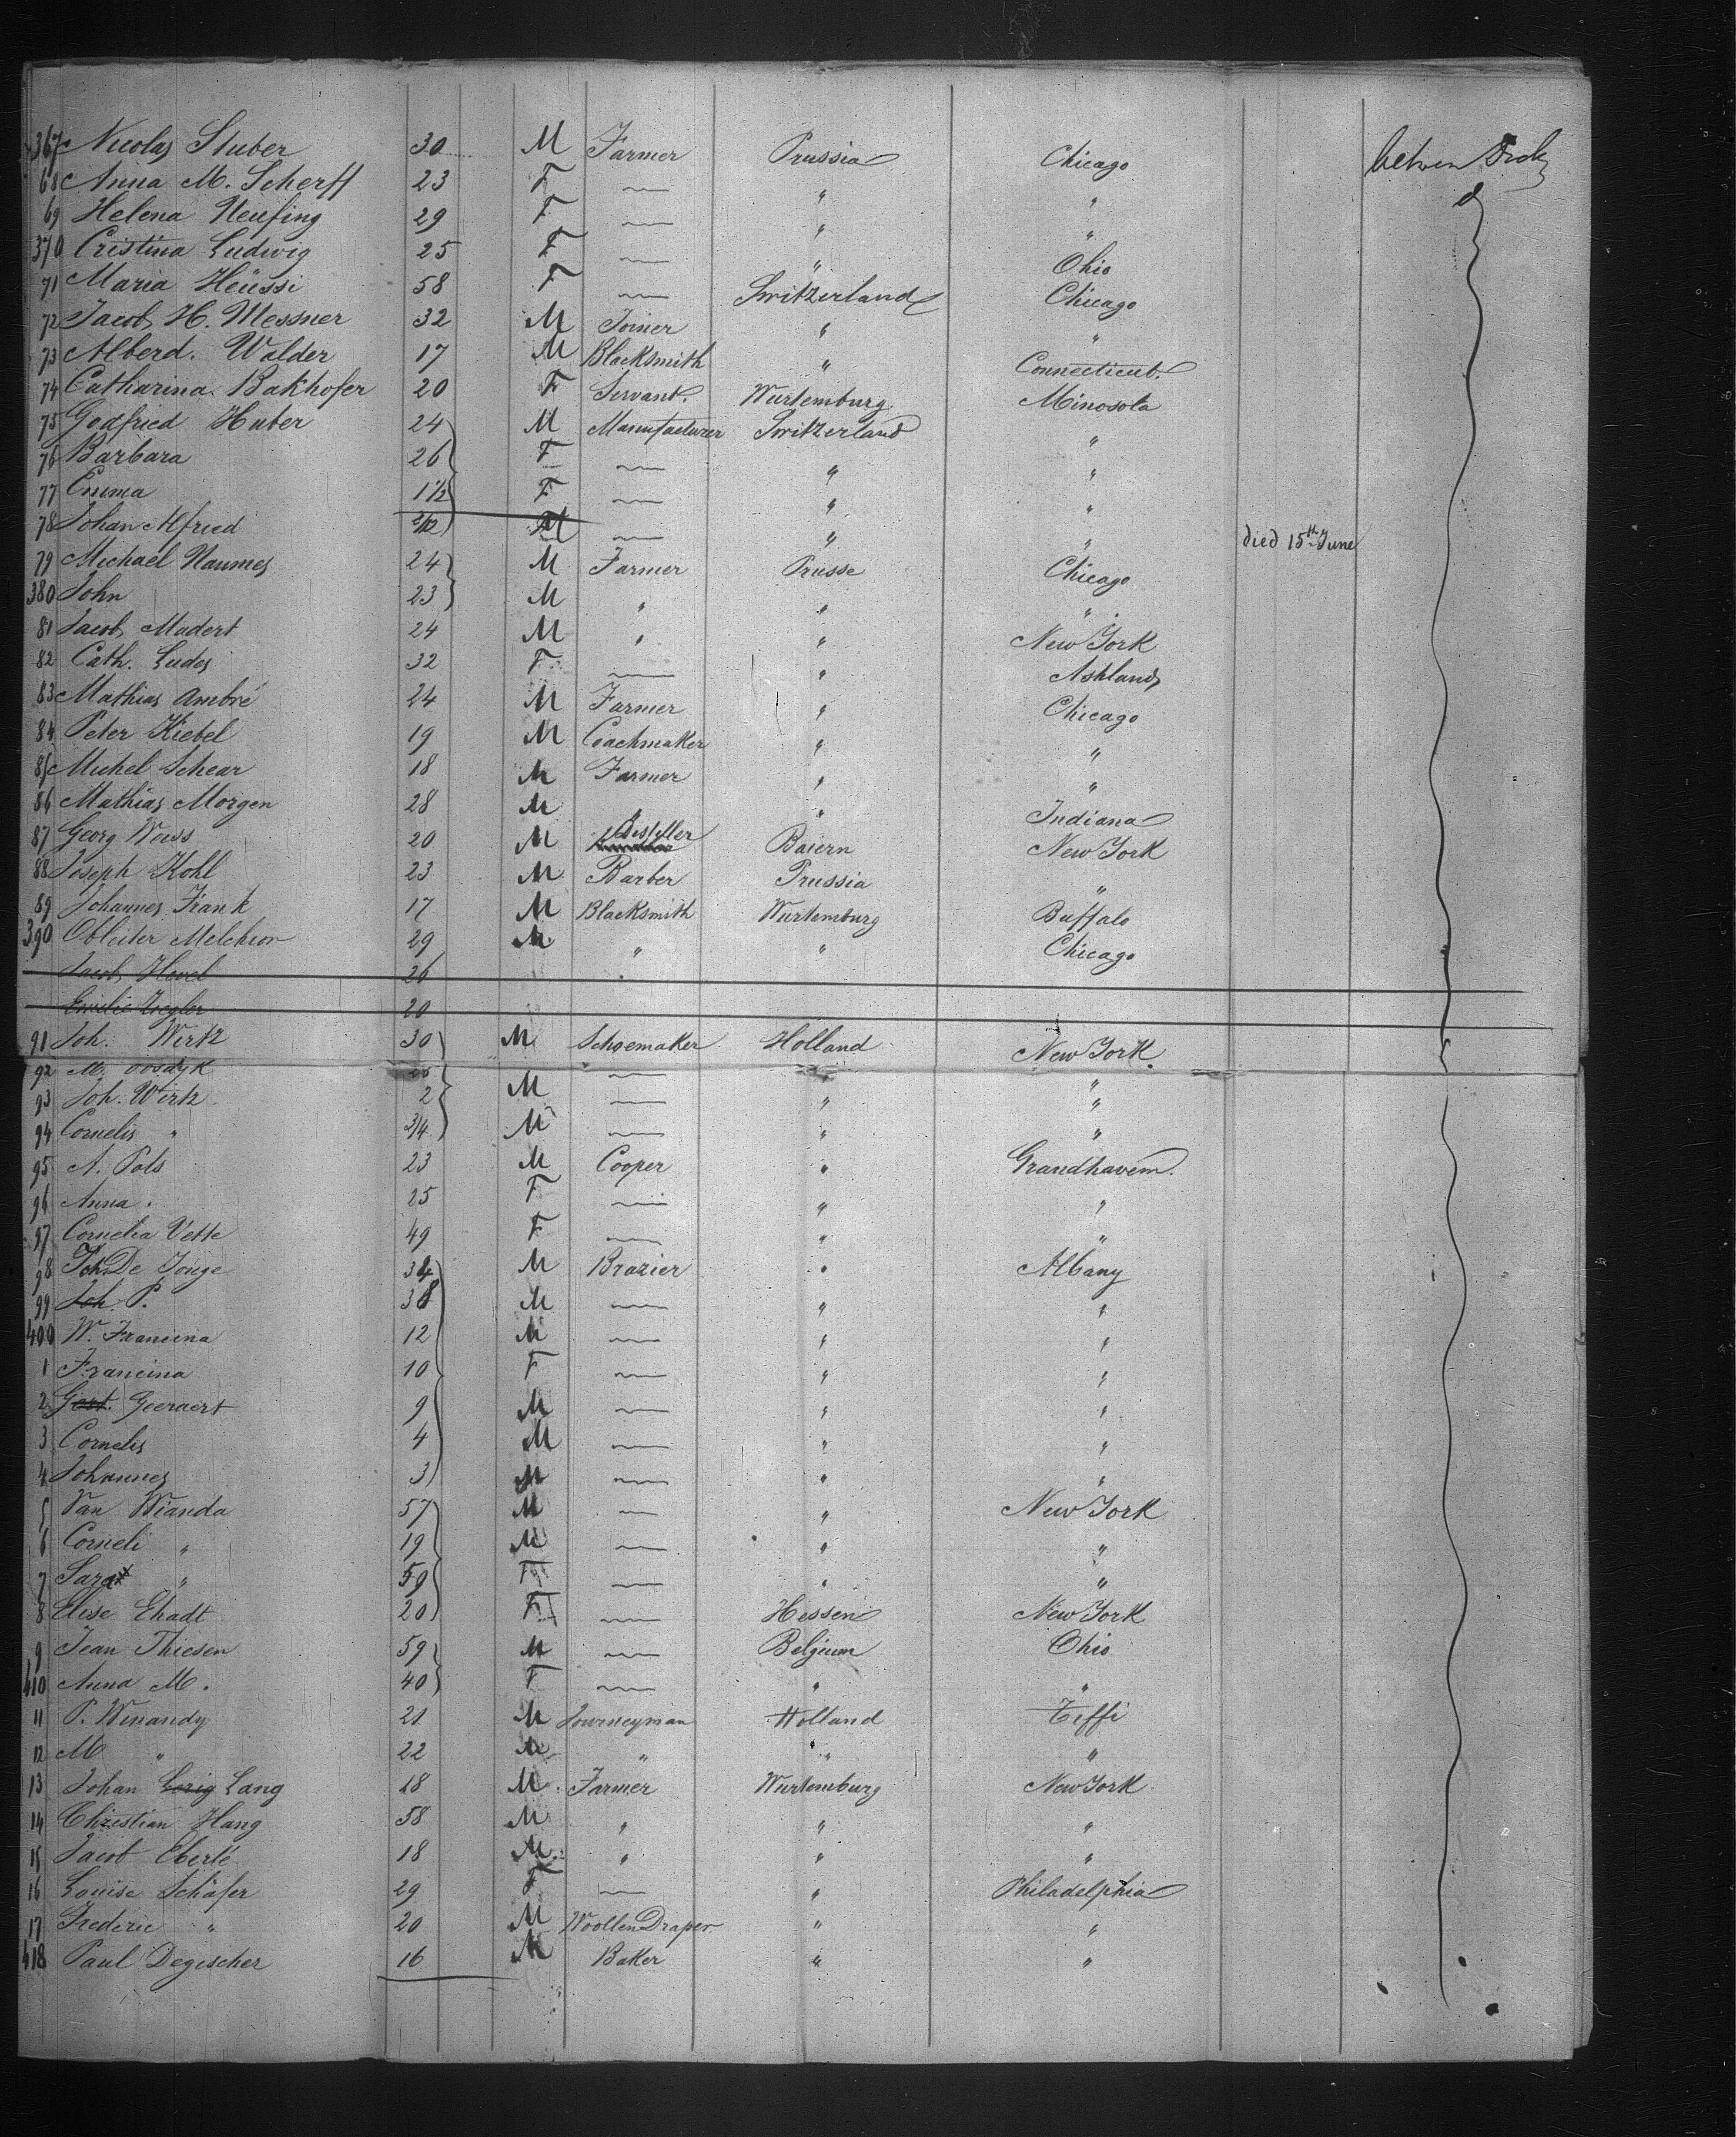 367 Nicolas Stuber 30 M Farmer Prussia Chicago betwen Deck
68 Anna M. Scherff 23 F — " "
69 Helena Neufing 29 F — " "
370 Cristina Ludwig 25 F — " Ohio
71 Maria Heüssi 58 F — Switzerland Chicago
72 Jacob H. Messner 32 M Joiner " "
73 Alberd. Walder 17 M Blacksmith " Connecticut.
74 Catharina Bakhofer 20 F Servant. Wurtemburg Minosota
75 Godfried Huber 24 M Manufacturer Switzerland "
76 Barbara 26 F — " "
77 Emma 1 1/2 F — " "
78 Johan Alfried 3/12 M — " " died 15th June
79 Michael Naumes 24 M Farmer Prusse Chicago
380 John 23 M " " "
81 Jacob Madert 24 M " " New York
82 Cath. Ludes 32 F — " Ashland
83 Mathias Ambré 24 M Farmer " Chicago
84 Peter Kiebel 19 M Coachmaker " "
85 Michel Schear 18 M Farmer " "
86 Mathias Morgen 28 M " " Indiana
87 Georg Weiss 20 M Distiller Baiern New York
88 Joseph Kohl 23 M Barber Prussia "
89 Johannes Frank 17 M Blacksmith Wurtemburg Buffalo
390 Obleiter Melchior 29 M " " Chicago
Jacob Hevel 26 "
Emilie Ziegler 20
91 Joh. Wirtz 30 M Schoemaker Holland New York.
92 M. oosdyk 25 — " "
93 Joh. Wirtz 2 M — " "
94 Cornelis " 3/4 M — " "
95 A. Pols 23 M Cooper " Grandhavem.
96 Anna " 25 F — " "
97 Cornelia Vette 49 F — " "
98 Joh De Jonge 34 M Brazier " Albany
99 Joh. P. 38 M — " "
400 W. Francina 12 M — " "
1 Francina 10 F — " "
2 Geeraert 9 M — " "
3 Cornelis 4 M — " "
4 Johannes 3 M — " "
5 Van Wianda 57 M — " New York
6 Corneli " 19 M — " "
7 Sara " 59 F — " "
8 Elise Ehadt 20 F — Hessen New York
9 Jean Thiesen 59 M — Belgium Ohio
410 Anna M. 40 F — " "
11 P. Winandy 21 M Journeyman Holland Tiffi
12 M " 22 M " " "
13 Johan Lorig Lang 18 M Farmer Wurtemburg New York
14 Christian Hang 58 M " " "
15 Jacob Eberlé 18 M " " "
16 Louise Schäfer 29 F — " Philadelphia
17 Frederic " 20 M Woollen Draper " "
418 Paul Degischer 16 M Baker " "